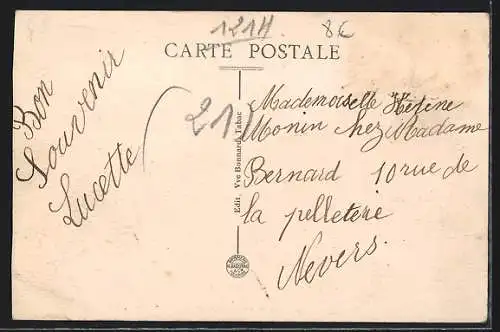 1214
8€
CARTE POSTALE
Bon
Souvenir
Lucette
21
Mademoiselle Hélène
Monin chez Madame
Bernard 10 rue de
la pelleterie
Nevers.
Edit. Vve Bonnard, Tabac